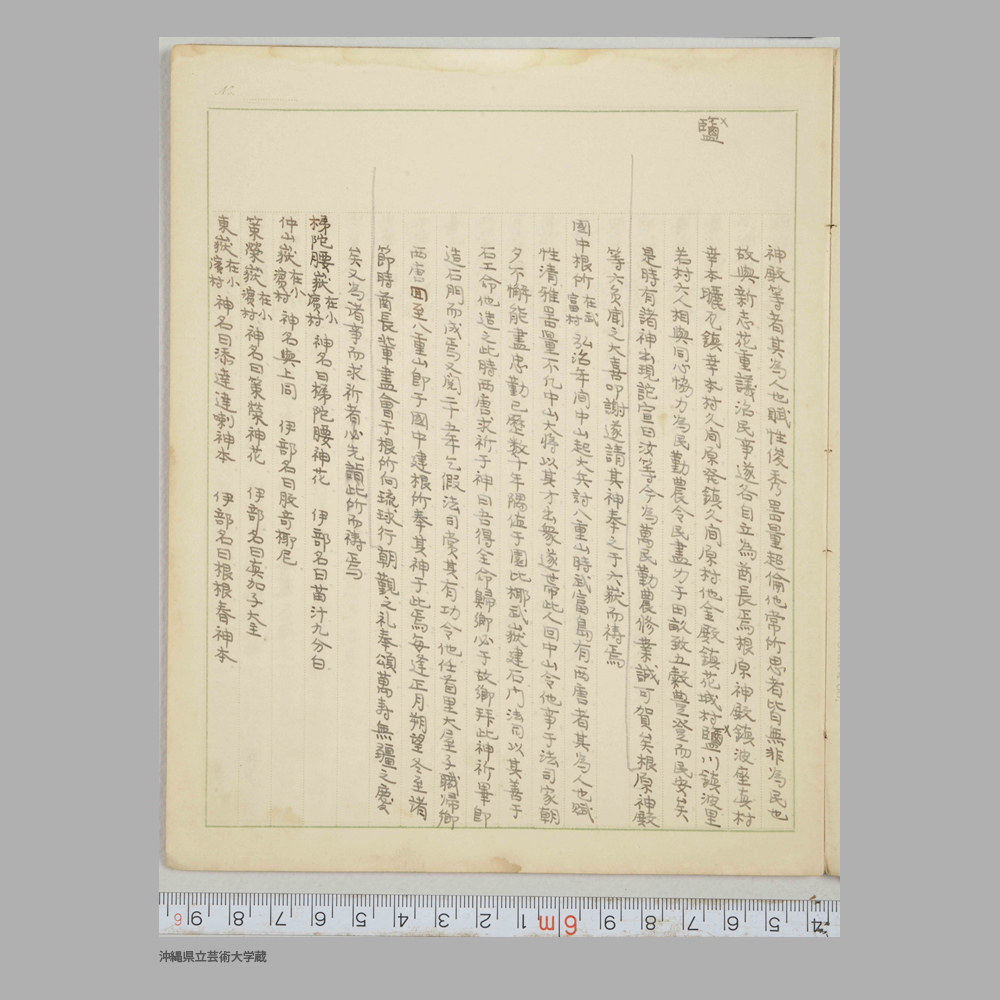 鹽
神殿等者其為人也賦性俊秀噐量超倫他常所思者皆無非為民也
故與新志花重議治民事遂各自立為酋長焉根原神殿鎮波座真村
幸本曬瓦鎮幸本村久間原発鎮久間原村他金殿鎮花城村鹽川鎮波里
若村六人相與同心協力為民勤農令民盡力于田畝致五穀豊登而民安矣
是時有諸神出現託宣曰汝等今為萬民勤農修業誠可賀矣根原神殿
等六員聞之大喜叩謝遂請其神奉之于六嶽而禱焉
國中根所 在武富村 弘治年间中山起大兵討八重山時武富島有西唐者其為人也賦
性清雅噐量不凡中山大將以其才出衆遂帯此人回中山令他事于法司家朝
夕不懈能盡忠勤已歷数十年隅値于園比椰武嶽建石門法司以其善于
石工命他造之此時西唐求祈于神曰吾得全命歸鄉必于故鄉拜此神祈畢即
造石門而成焉又閲二十五年乞假法司賞其有功令他任首里大屋子職帰鄉
西唐回至八重山即于國中建根所奉其神于此焉每逢正月朔望冬至諸
節時酋長輩盡會于根所向琉球行朝覲之礼奉頌萬壽無疆之慶
矣又為諸事而求祈者必先詣此所而禱焉
梯陀腰嶽 在小濱村 神名曰梯陀腰神花 伊部名曰苗汁九分白
仲山嶽 在小濱村 神名與上同 伊部名曰照音椰尼
策榮嶽 在小濱村 神名曰策榮神花 伊部名曰真加子大主
東嶽 在小濱村 神名曰添達達喇神本 伊部名曰根根春神本
6 9 8 7 6 5 4 3 2 1 6m 9 8 7 6 5 4
沖縄県立芸術大学蔵